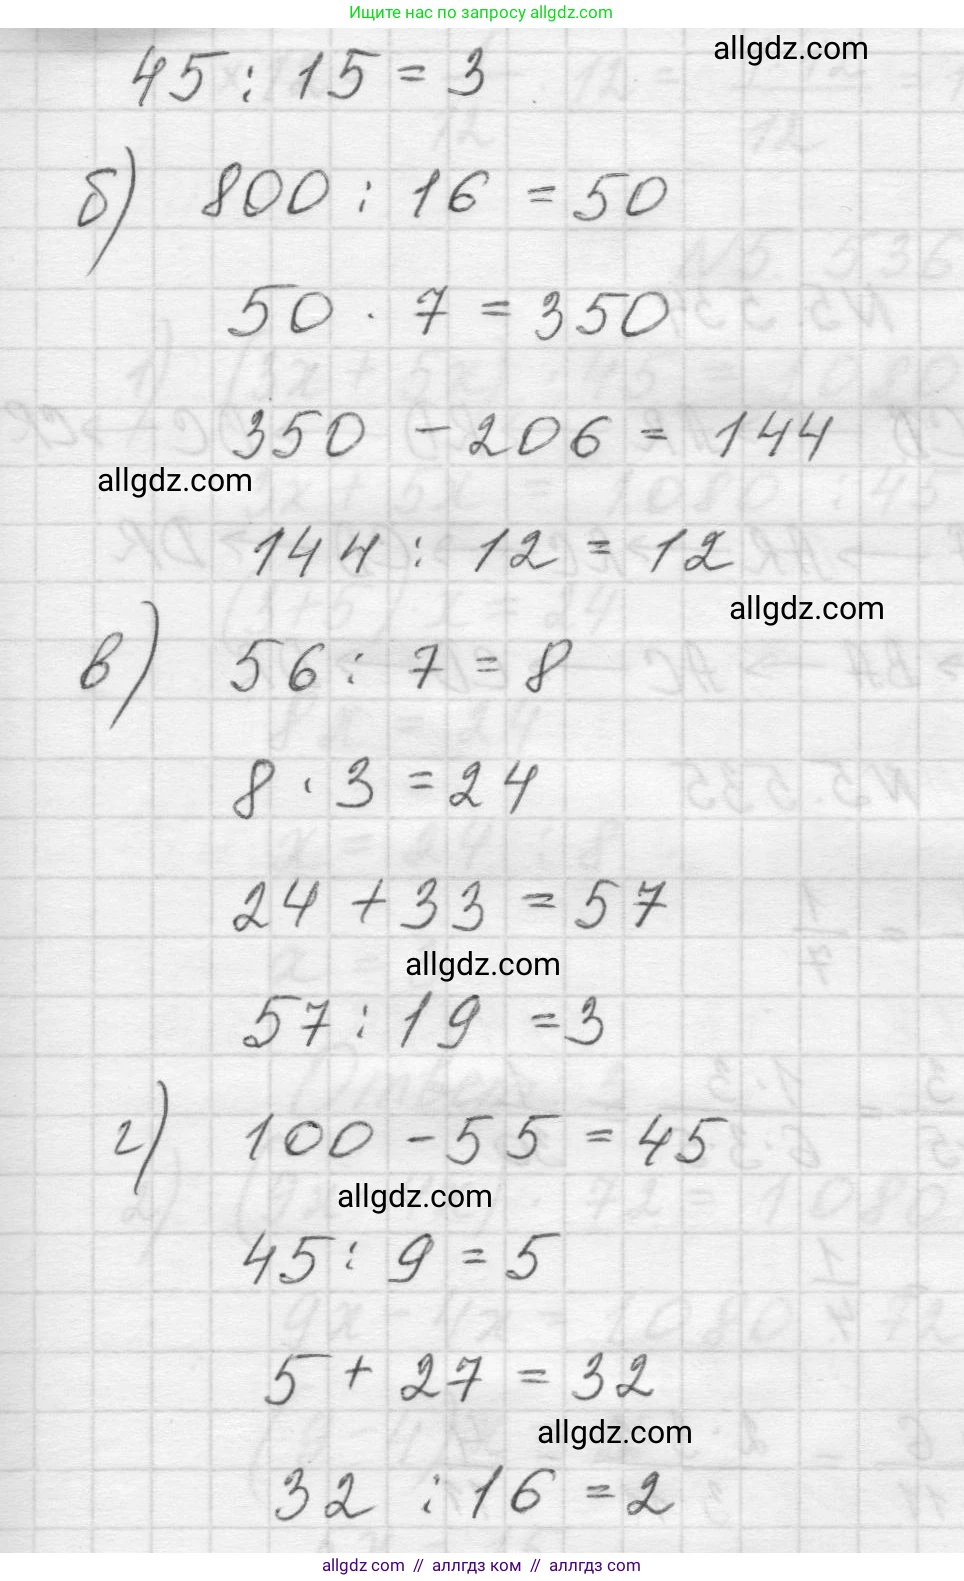 Ищите нас по запросу allgdz.com
45 : 15 = 3
allgdz.com
б) 800 : 16 = 50
50 · 7 = 350
350 - 206 = 144
allgdz.com
144 : 12 = 12
allgdz.com
в) 56 : 7 = 8
8 · 3 = 24
24 + 33 = 57
allgdz.com
57 : 19 = 3
г) 100 - 55 = 45
allgdz.com
45 : 9 = 5
5 + 27 = 32
allgdz.com
32 : 16 = 2
allgdz.com // аллгдз ком // аллгдз.com